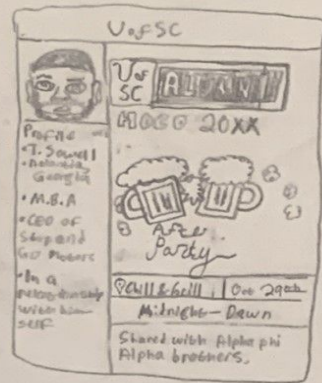 U of SC
Profile
• T. Sowell
• Atlanta,
Georgia
• M.B.A
• CEO of
Stop and
Go Motors
• In a
relationship
with him
self
U of
SC
ALUMNI
HOCO 20XX
After
Party
Chill & Grill
Oct 29th
Midnight - Dawn
Shared with Alpha phi
Alpha brothers.